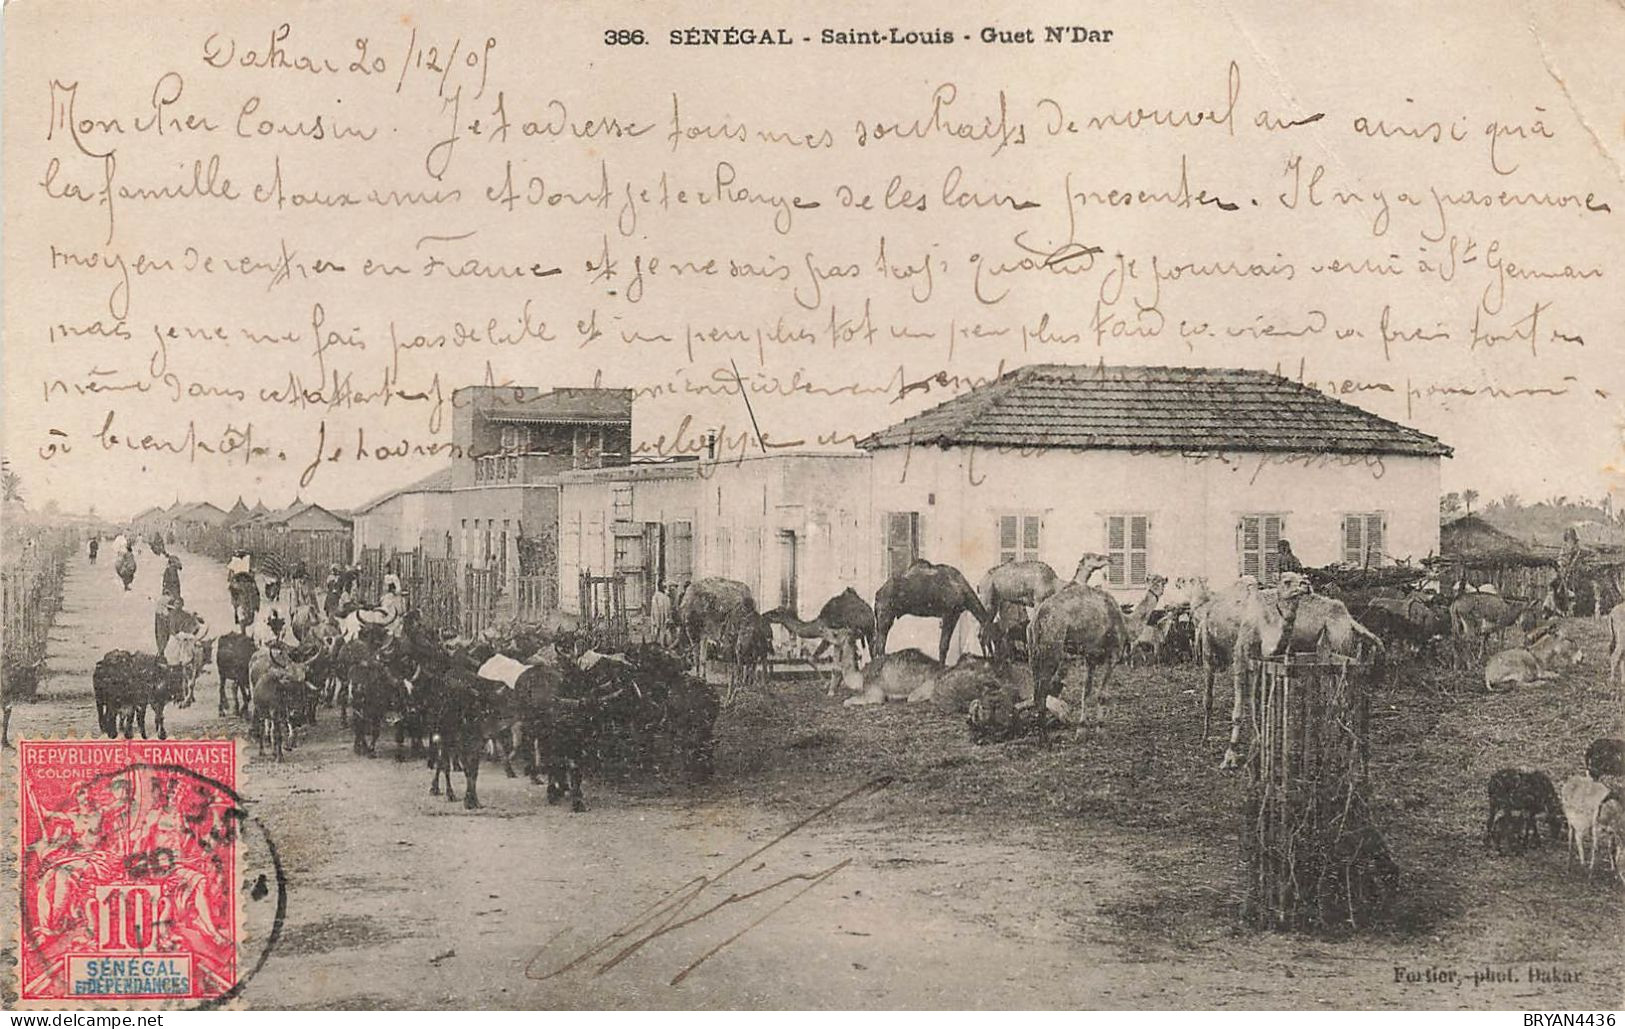 386. SÉNÉGAL - Saint-Louis - Guet N'Dar
Dakar 20/12/05
Mon cher Cousin. Je t'adresse tous mes souhaits de nouvel an ainsi qu'à
la famille et aux amis et dont je te charge de les leur présenter. Il n'y a pas encore
moyen de rentrer en France et je ne sais pas trop quand je pourrais venir à St Germain
mais je ne me fais pas de bile et un peu plus tot un peu plus tard ça viendra
même dans cette attente je te
à bientôt. Je t'adresse enveloppe un
REPVBLIQVE FRANÇAISE
COLONIES
10
SÉNÉGAL
ET DÉPENDANCES
SENEGAL
Fortier, phot. Dakar
BRYAN4436